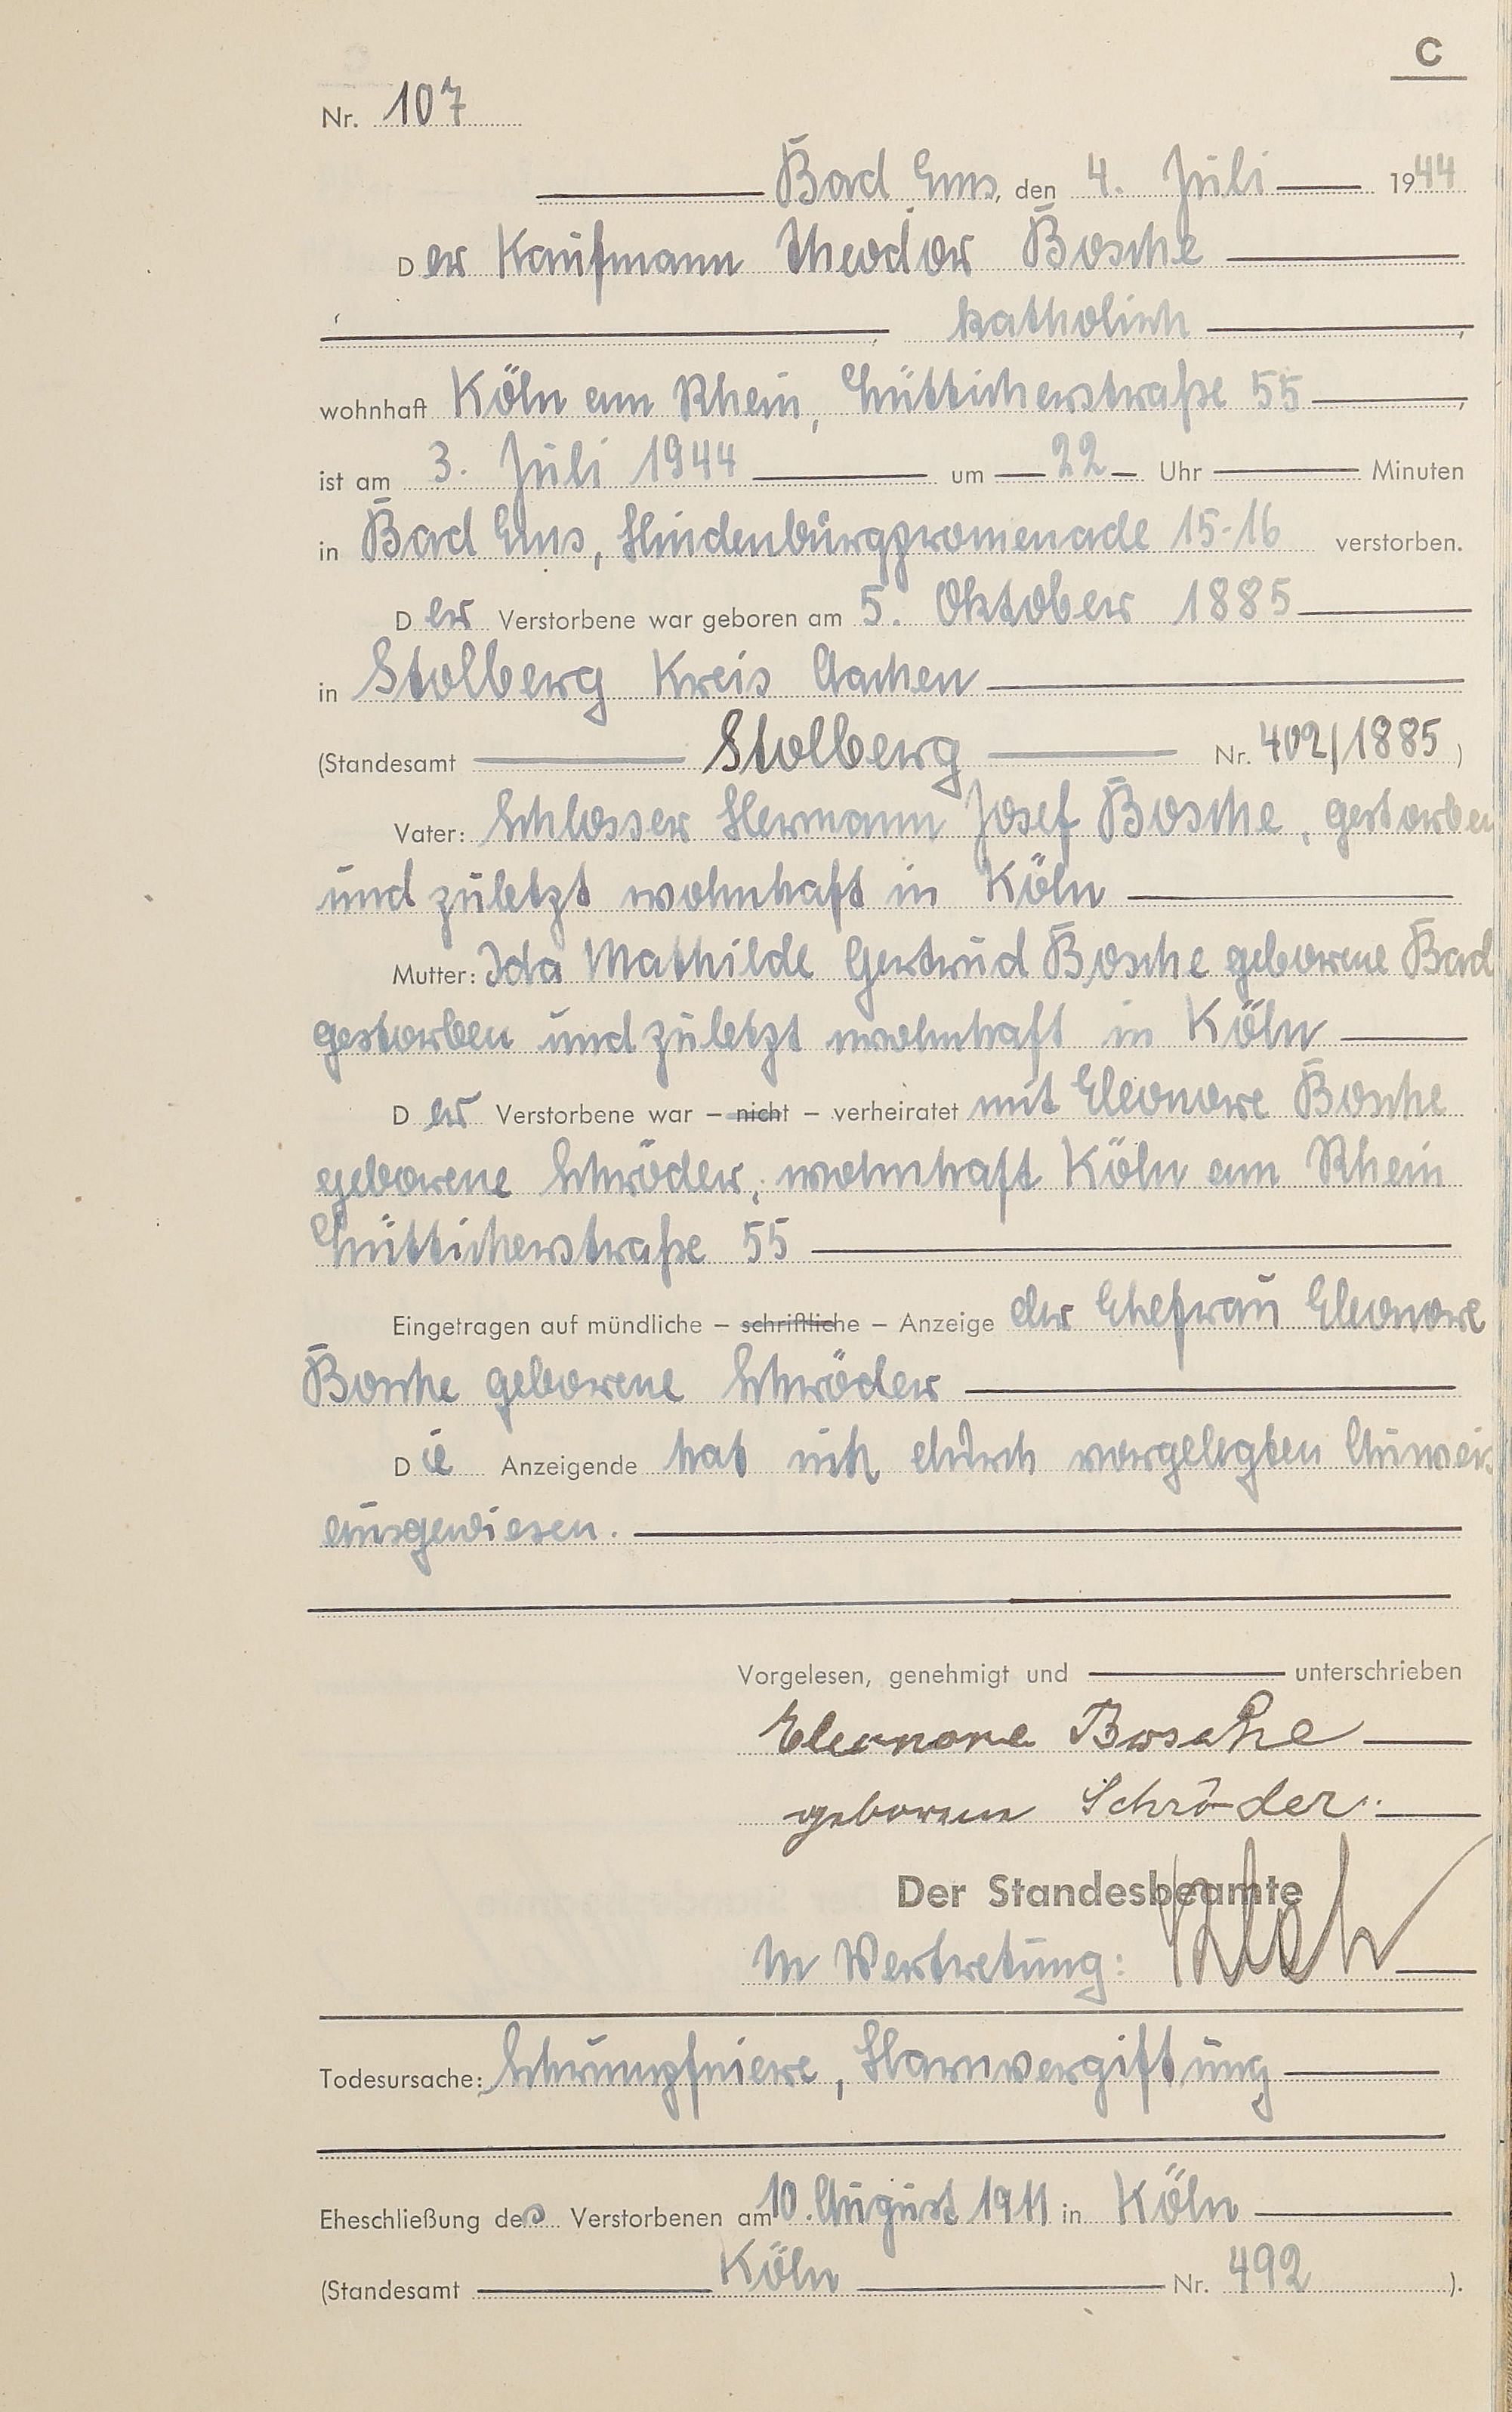 C
Nr. 107
Bad Ems, den 4. Juli 1944
Der Kaufmann Theodor Bosche
katholisch,
wohnhaft Köln am Rhein, Lütticherstraße 55,
ist am 3. Juli 1944 um 22 Uhr Minuten
in Bad Ems, Hindenburgpromenade 15-16 verstorben.
Der Verstorbene war geboren am 5. Oktober 1885
in Stolberg Kreis Aachen
(Standesamt Stolberg Nr. 402/1885)
Vater: Schlosser Hermann Josef Bosche, gestorben
und zuletzt wohnhaft in Köln
Mutter: Ida Mathilde Gertrud Bosche geborene Bad
gestorben und zuletzt wohnhaft in Köln
Der Verstorbene war – nicht – verheiratet mit Eleonore Bosche
geborene Schröder, wohnhaft Köln am Rhein
Lütticherstraße 55
Eingetragen auf mündliche – schriftliche – Anzeige der Ehefrau Eleonore
Bosche geborene Schröder
Die Anzeigende hat sich durch vorgelegten Ausweis
ausgewiesen.
Vorgelesen, genehmigt und unterschrieben
Eleonore Bosche
geborene Schröder.
Der Standesbeamte
In Vertretung:
Todesursache: Schrumpfniere, Harnvergiftung
Eheschließung des Verstorbenen am 10. August 1911 in Köln
(Standesamt Köln Nr. 492).